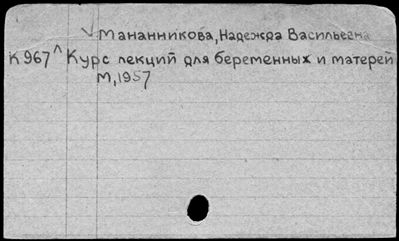 Мананникова, Надежда Васильевна
К967 Курс лекций для беременных и матерей
М, 1957